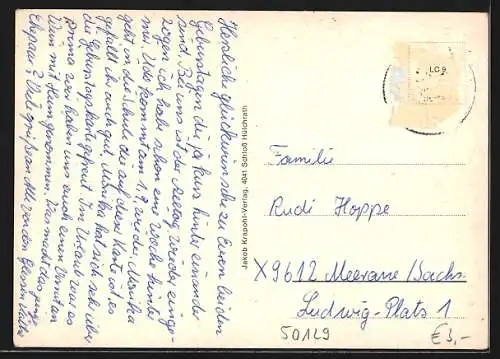 Herzliche Glückwünsche zu Euren beiden
Geburtstagen die ja kurz hinter einander
sind. Bei uns ist der Alltag wieder einge-
zogen ich habe schon eine Woche hinter
mir. Udo kommt am 1. 9. wie die Monika
geht in die Schule die auf dieser Karte ist es
gefällt ihr auch gut. Monika hat sich sehr über
die Geburtstagskarte gefreut. Im Urlaub war es
prima wir haben uns auch einen
Wein mit Heim genommen. Was macht das junge
Ehepaar? Viele Grüße an Alle von den
Jakob Krapohl-Verlag, 4041 Schloß Hülchrath
LC 9
Familie
Rudi Hoppe
X9612 Meerane/Sachs.
Ludwig-Platz 1
50129
€ 3,-